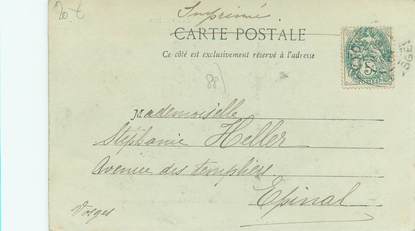 20 €
Imprimé
CARTE POSTALE
Ce côté est exclusivement réservé à l'adresse
Mademoiselle
Stéphanie Heller
Avenue des templiers
Epinal
Vosges